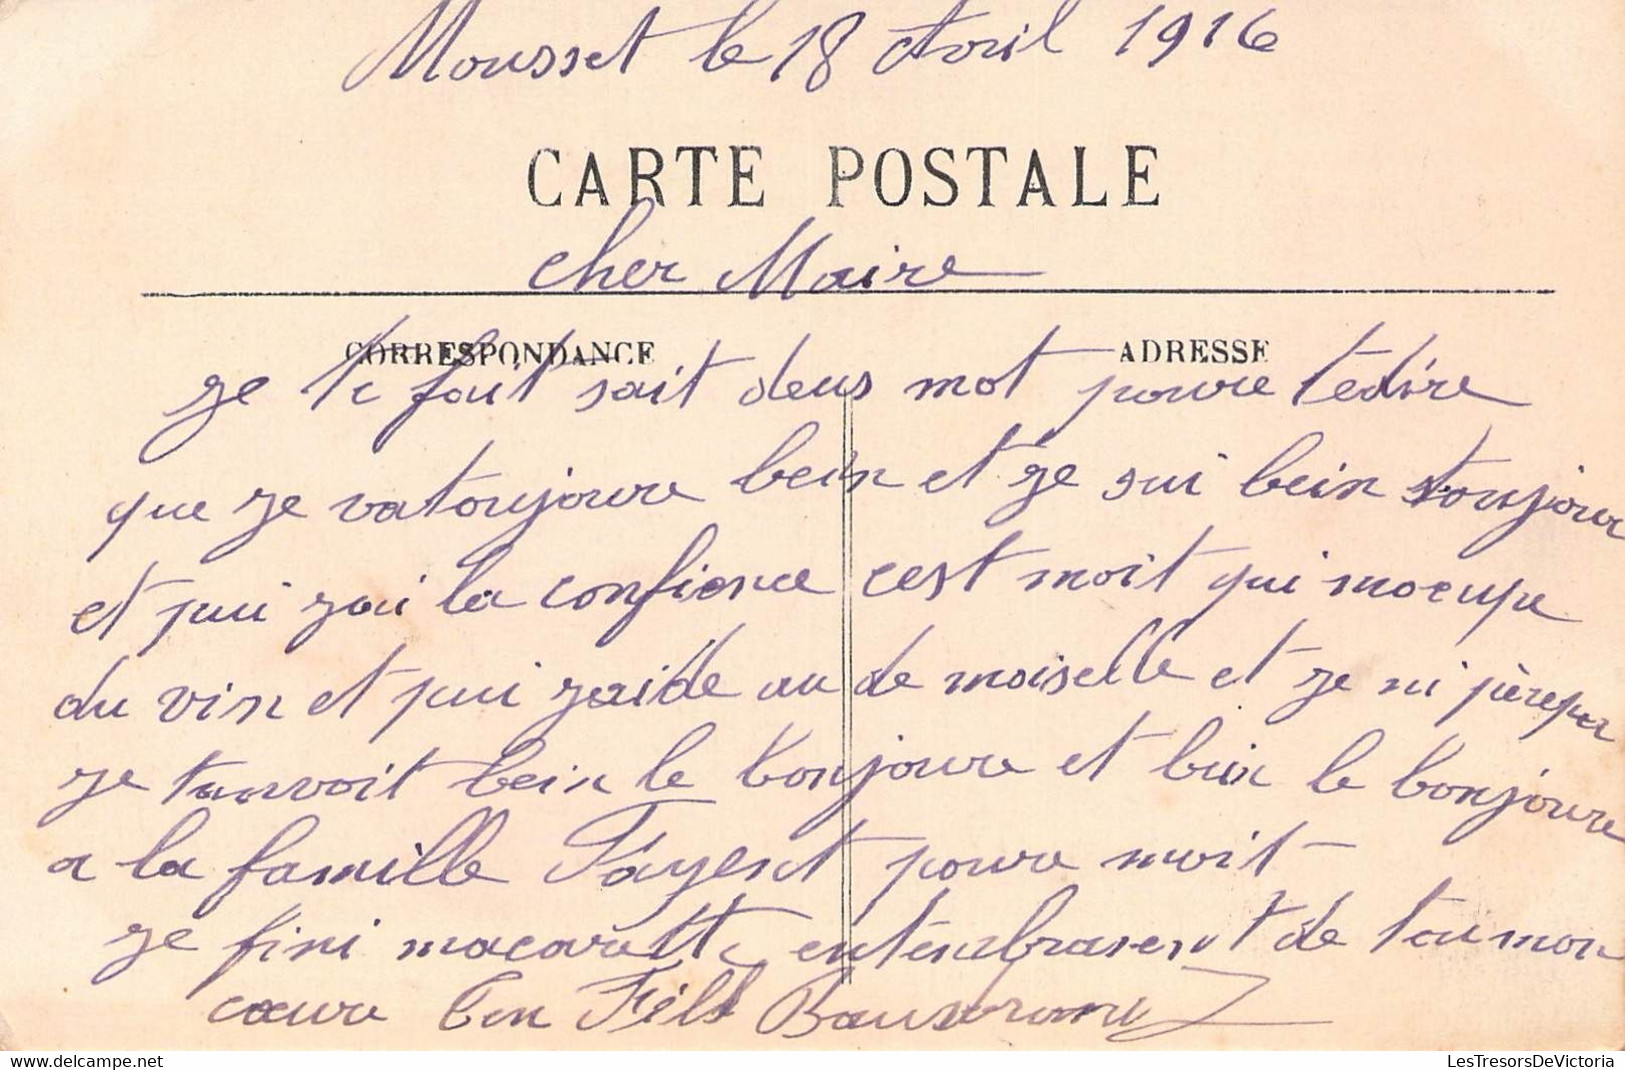 Mousset le 18 Avril 1916
CARTE POSTALE
cher Maire
CORRESPONDANCE
ADRESSE
ge te fait sait deus mot poure tedire
que ge va toujoure bein et ge sui bein toujour
et pui gai la confience cest moit qui mocupe
du vin et pui gaide au de moiselle et ge ni pèrepa
ge tanvoit bein le bonjoure et bein le bonjoure
a la famille Payent poure moit
ge fini macaratte en tenbrasent de tou mon
cœure ton Fils
LesTresorsDeVictoria